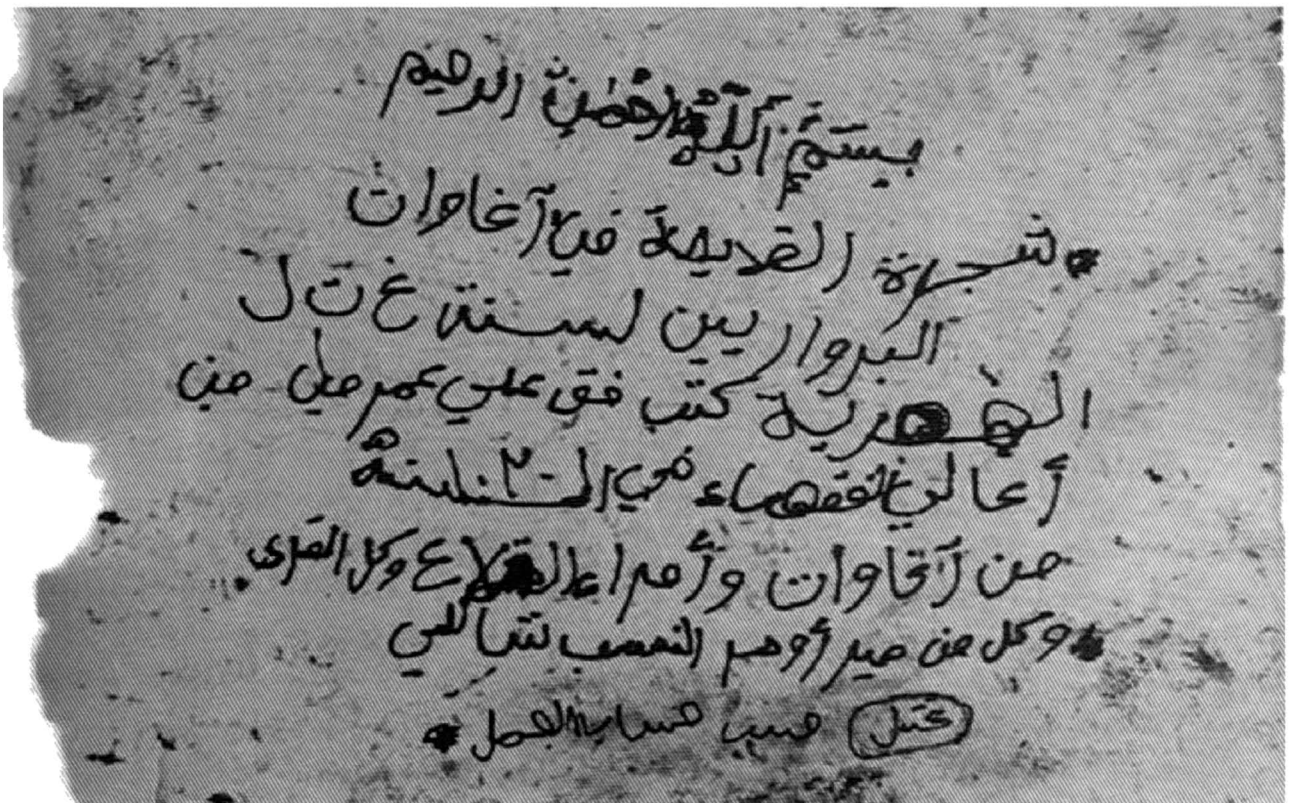 بِسْمِ اللهِ الرحمن الرحيم
شجرة القديمة من آغاوات
البرواريين لسنة غ ت ل
الهجرية كتب فقى علي عمر من
أعالي الفقهاء في الـ
من آقاوات وأمراء القلاع وكل القرى.
وكل من مير أو هم النسب
غتل حسب حساب الجمل